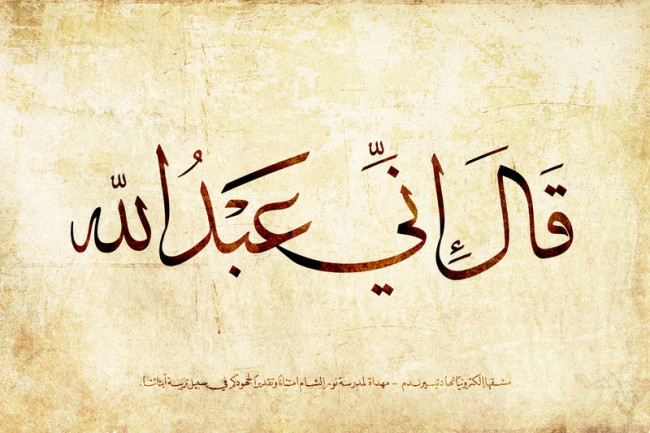 قَالَ إِنِّي عَبْدُ اللّٰه
مشقها إلكترونيًا نهاد تيسير ندم - مهداة لمدرسة نور الشام امتنانا وتقديرا لجهودكم في سبيل تربية أبنائنا.